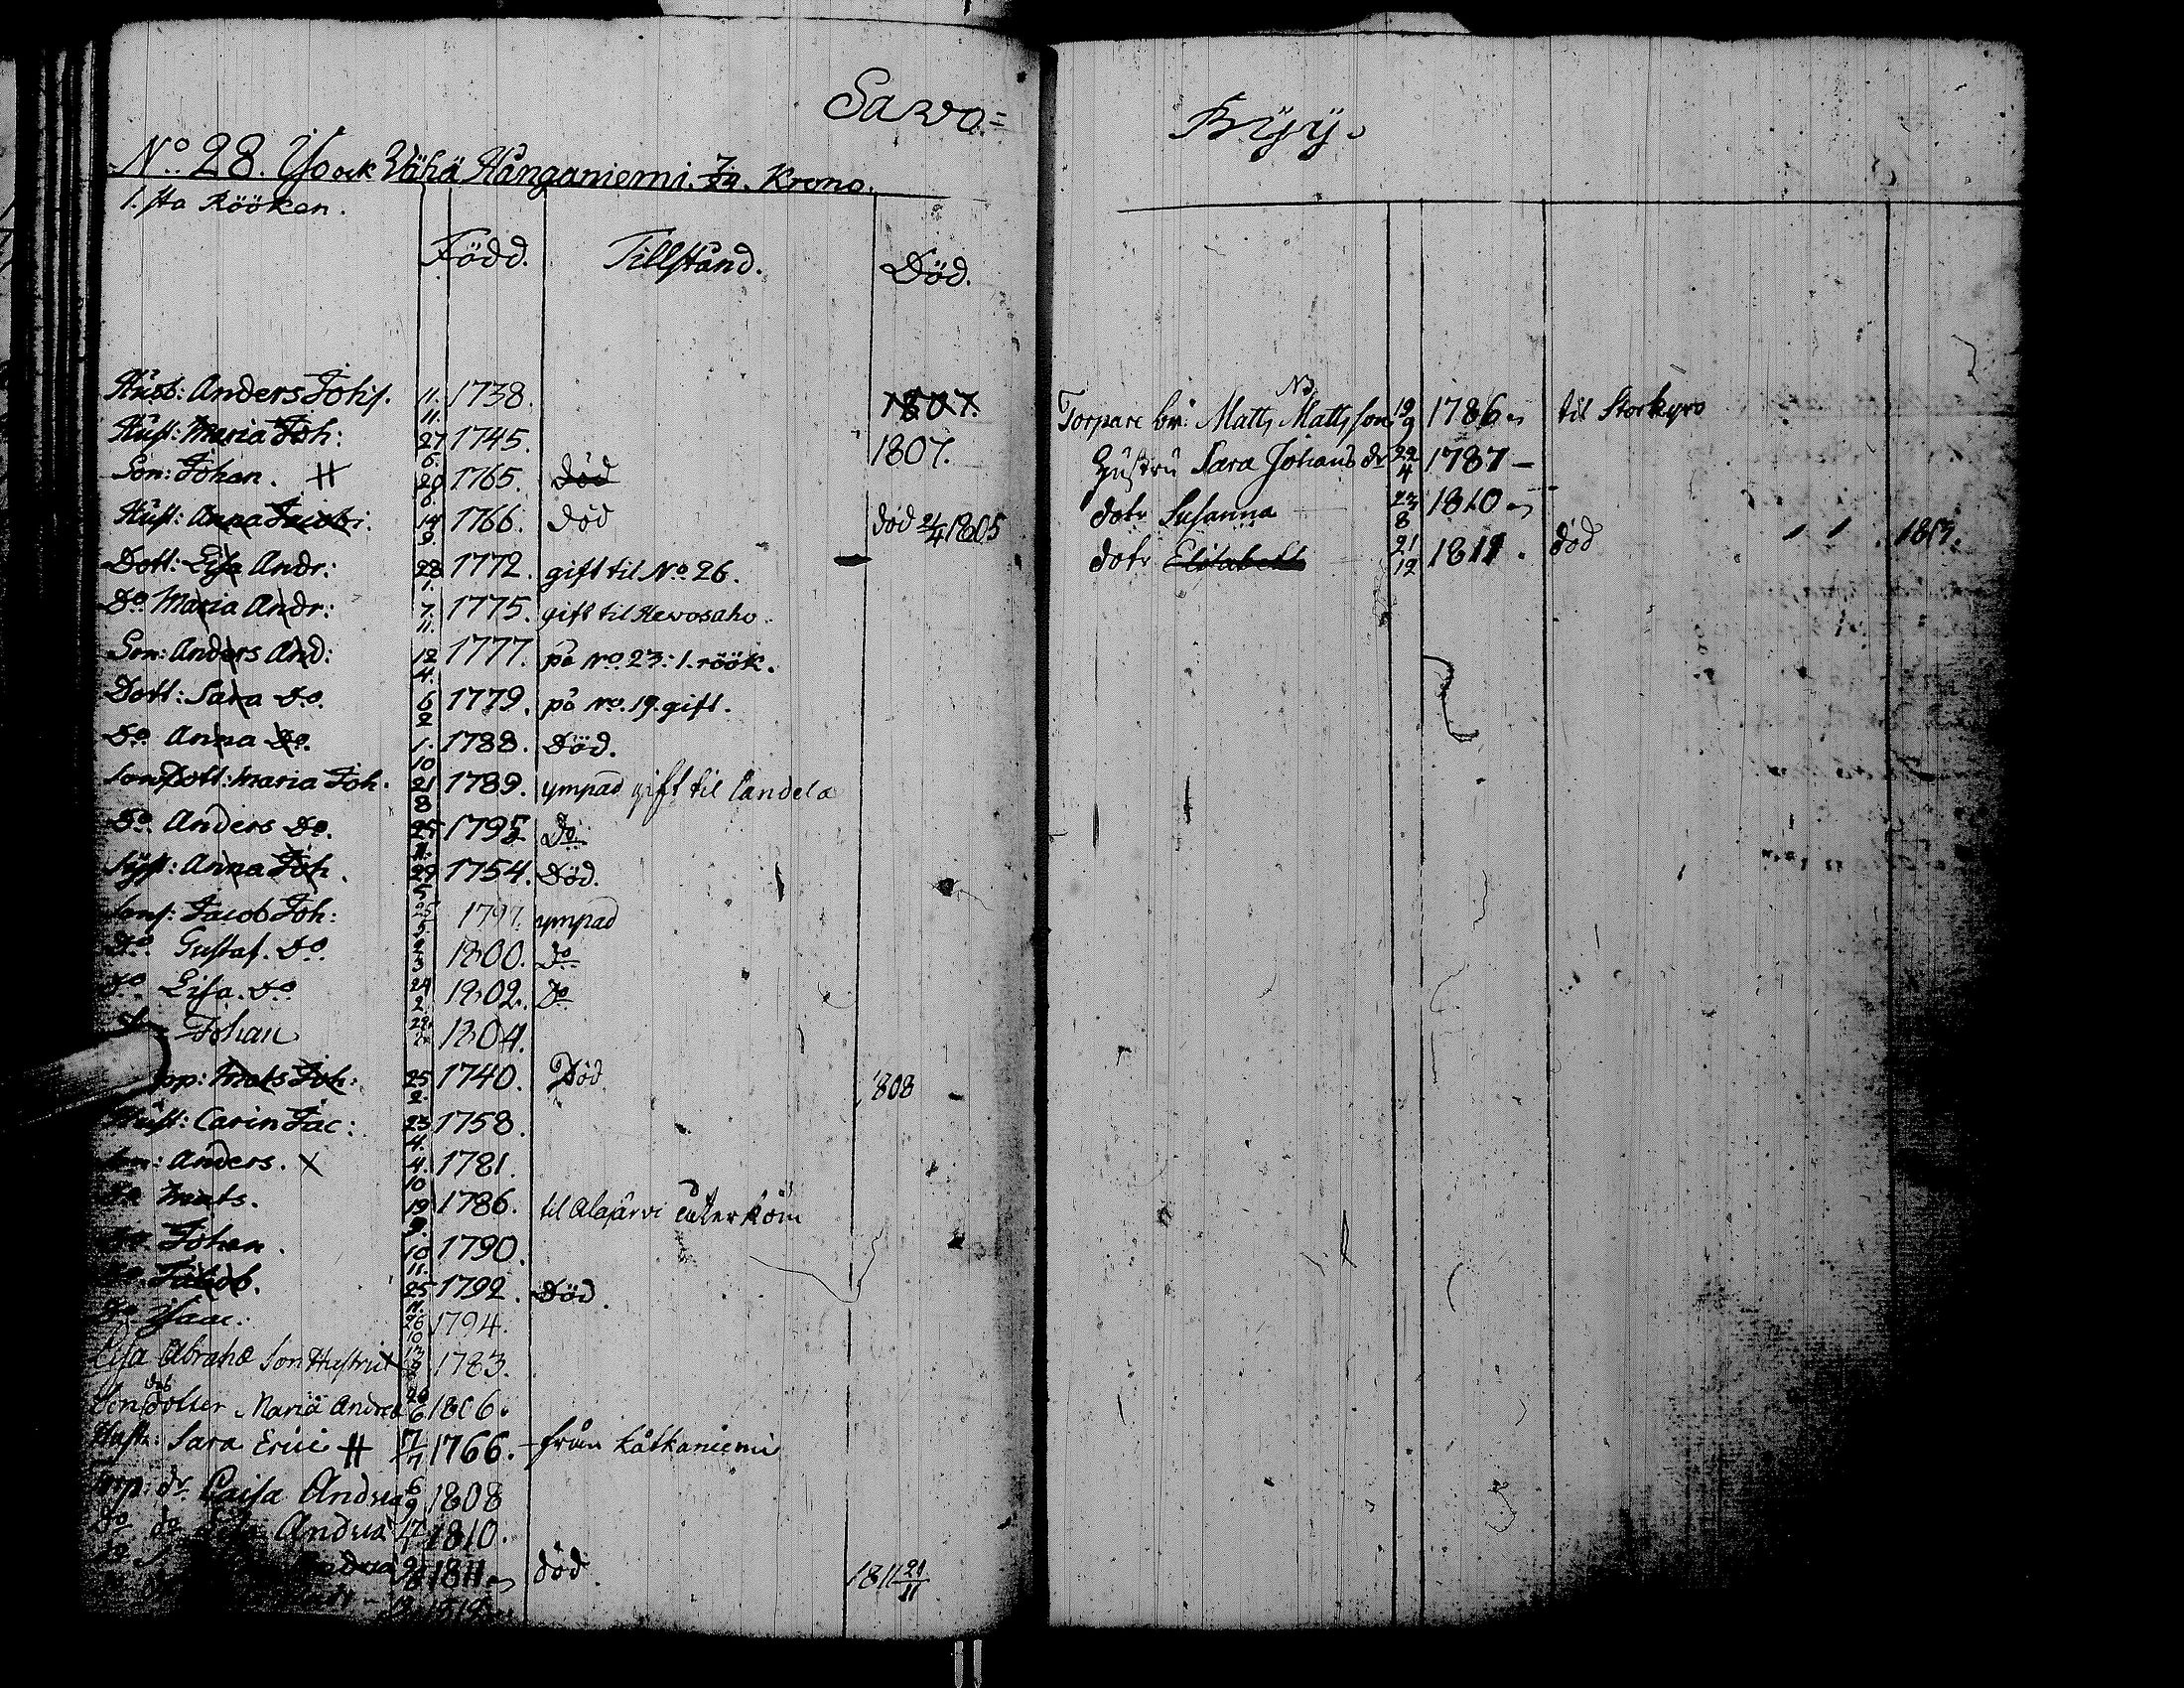 Savo=
No 28. Yso ock Wähä Kånganiemi. 7/24. Krono.
1.sta Rööken.
Född. Tillstånd. Död.
Husb: Anders Johs. 11. 11. 1738. 1807.
Hust: Maria Joh: 27 6. 1745. 1807.
Son: Johan. 1765. Död
Hust: Anna Jacobi. 14 9. 1766. död död 2/4 1805
Dott: Lisa Andr: 28 1772. gift til No 26.
Do Maria Andr: 7. 11. 1775. gift til Hevosaho
Son: Anders And: 12 4. 1777. på No 23: 1. röök.
Dott: Sara Do. 6 2 1779. på No. 19. gift.
Do Anna Do. 1. 10 1788. Död.
Sons Dott: Maria Joh. 21 8 1789. ympad gift til Candela
Do Anders Do. 25 1795 Do
Anna Joh. 29 5 1754. Död.
Sons: Jacob Joh: 25 5. 1797. ympad
Do Gustaf. Do 2 3 1800. Do
Do Lisa. Do 24 2. 1802. Do
Johan 29 1804.
Mats Joh: 25 2. 1740. Död 1808
Hust: Carin Jac: 23 4. 1758.
Son: Anders. X 4. 10 1781.
Do Mats. 19 9. 1786. til Alajärvi åter kom
Do Johan. 10 11. 1790.
Do Jacob. 25 1792. Död
Do Isaac. 26 10 1794.
Lisa Abrahe Son Hustru 1783.
Sons dotter Maria Andrea 1806.
Hust: Sara Erici 1766. från Kåtkaniemi
dr Caisa Andrea 6 9 1808
Do do Lisa Andrea 1810.
1811 död 1811 21/11

Byy.
Torpare br: Matts Mattsson 19 9 1786 til Storkyro
Hustru Sara Johans dr 22 4 1787 –
dotr Susanna 23 8 1810
dotr Elisabeth 21 12 1811. död 1813.